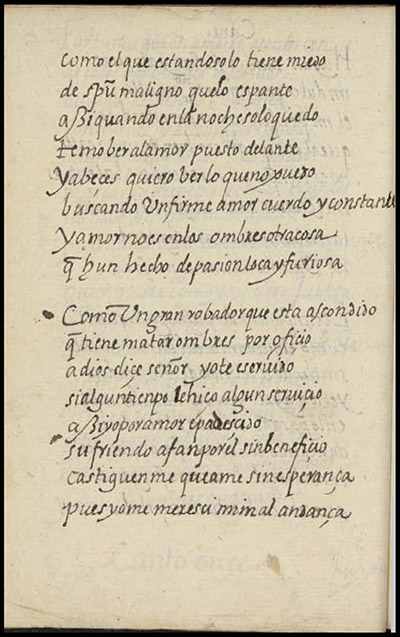 como el que estando solo tiene miedo
de spũ maligno que lo espante
assi quando en la noche solo quedo
temo ber al amor puesto delante
y a beçes quiero ver lo que no puedo
buscando Un firme amor cuerdo y constante
y amor no es en los ombres otra cosa
q̃ hun hecho de pasion loca y furiosa
Como Un gran robador que esta ascondido
q̃ tiene matar ombres por oficio
a dios diçe señor yo te e seruido
si algun tienpo le hiço algun seruiçio
assi yo por amor e padesçido
sufriendo afan por el sin benefiçio
castiguenme que ame sin esperança
pues yo me meresci mi mal andança